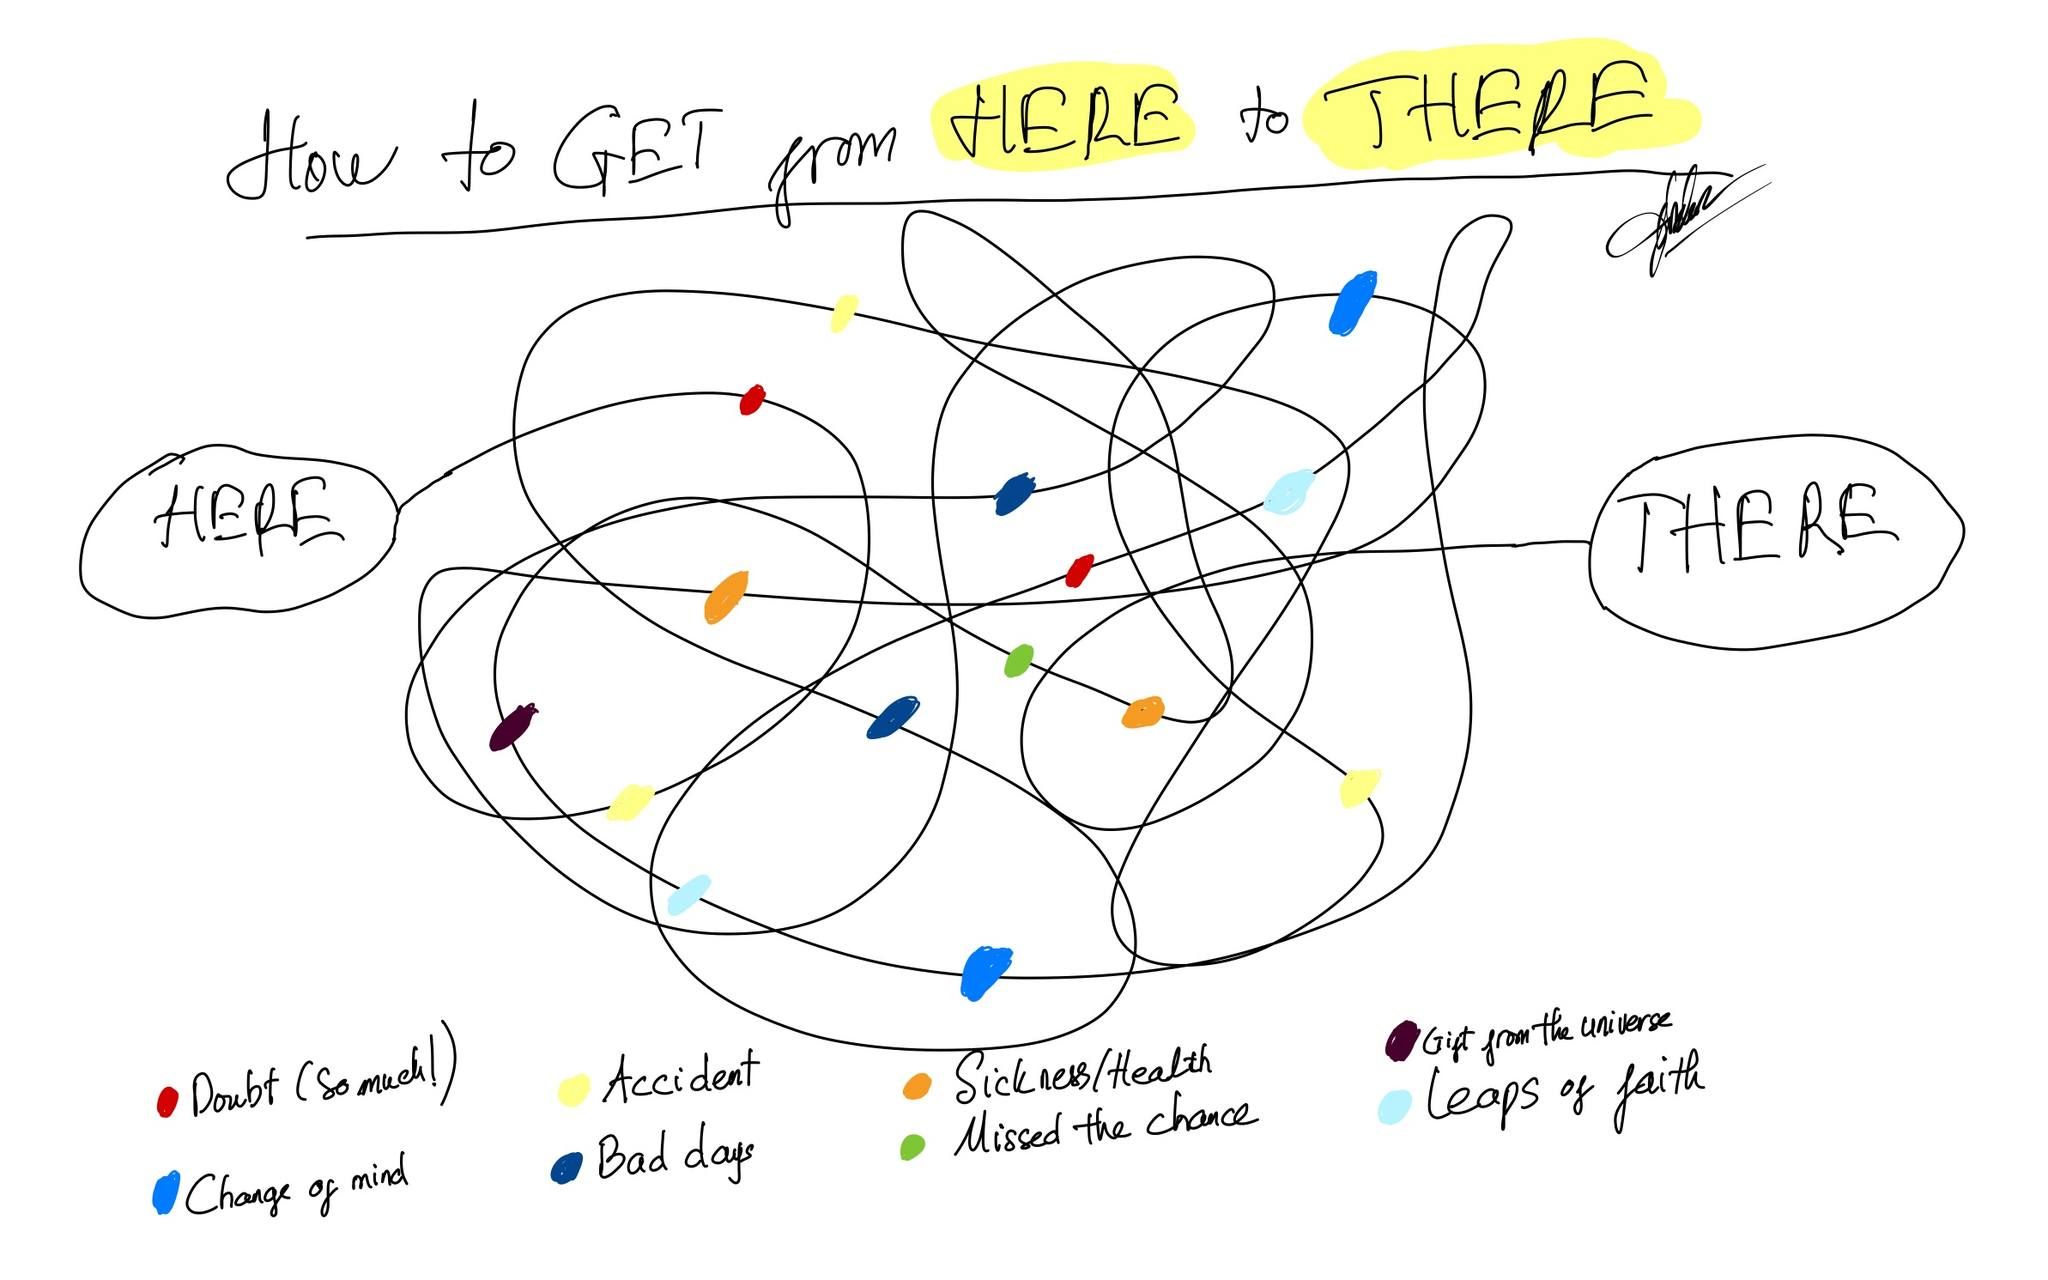 How to GET from HERE to THERE
HERE
THERE
Doubt (so much!)
Accident
Sickness/Health
Gift from the universe
Change of mind
Bad days
Missed the chance
Leaps of faith